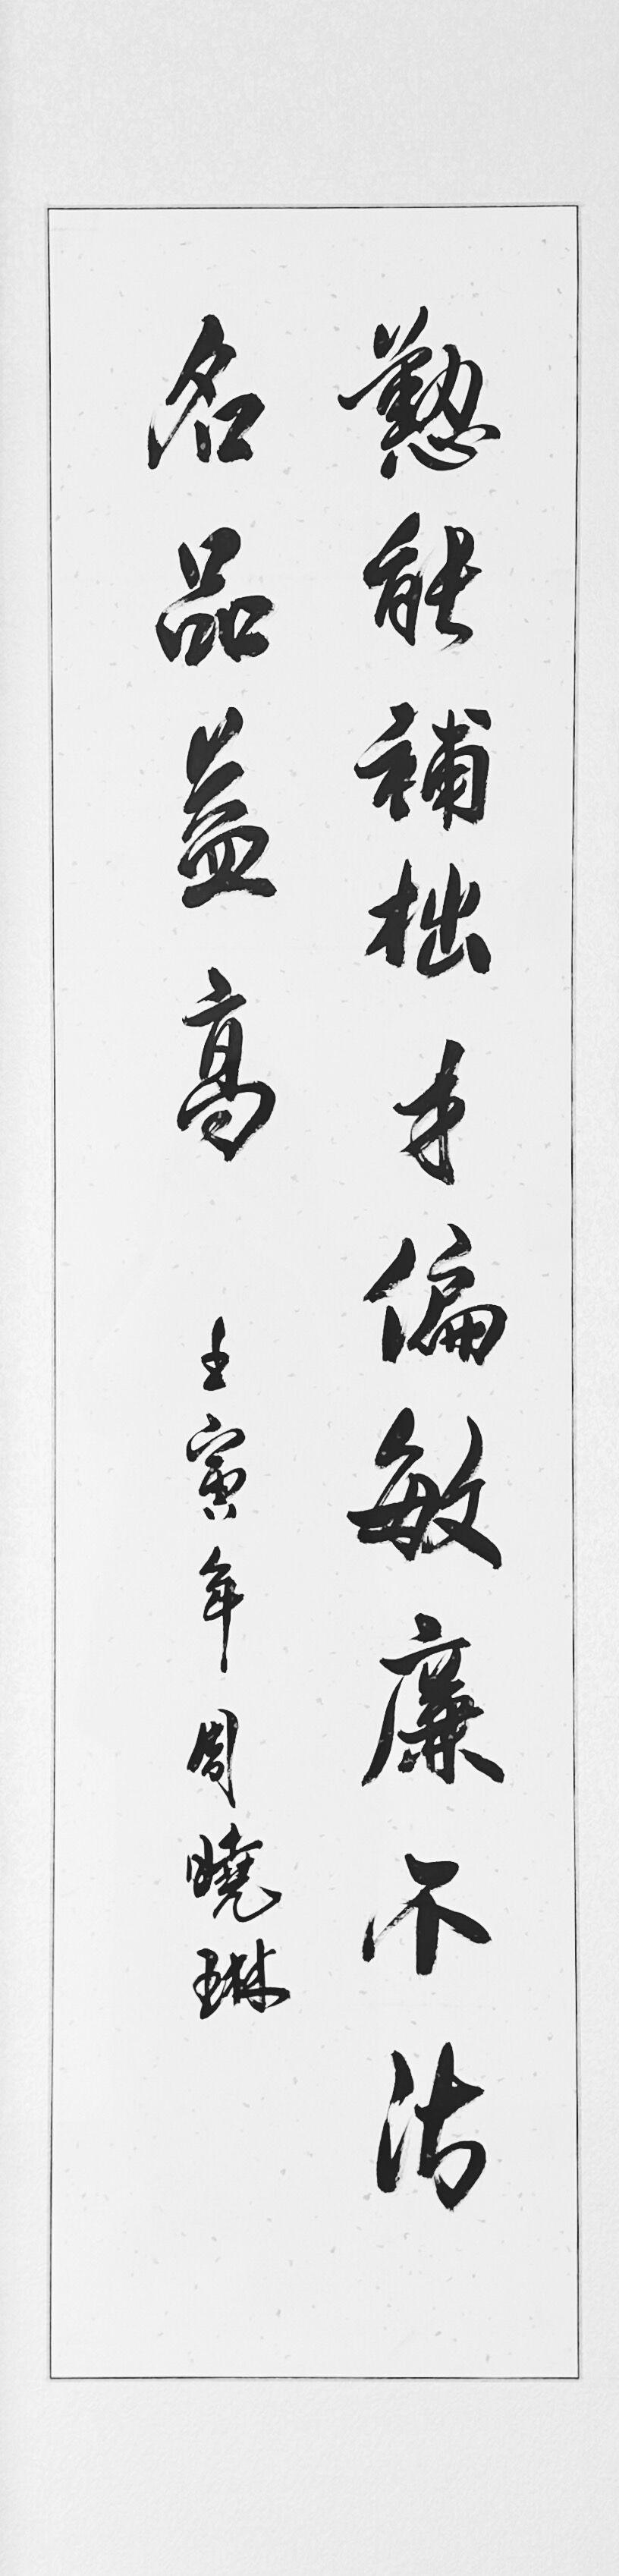 懃能補拙才偏敏廉不沽
名品益高
壬寅年周曉琳